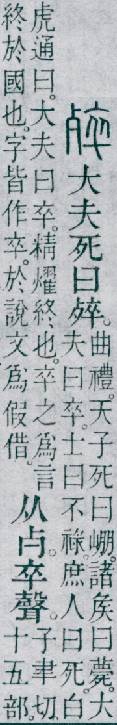 𣨛大夫死曰𣨛。曲禮。天子死曰𡹔。諸矦曰薨。大
夫曰卒。士曰不祿。庶人曰死。白
虎通曰。大夫曰卒。精燿終也。卒之爲言
終於國也。字皆作卒。於說文爲假借。从𣦵。卒聲。子聿切。
十五部。